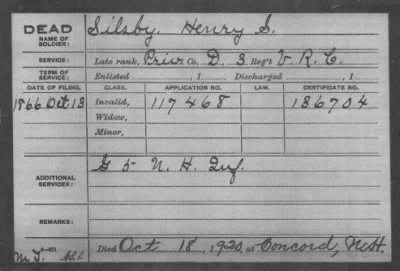 DEAD
NAME OF SOLDIER: Silsby, Henry S.
SERVICE: Late rank, Priv. Co. D, 3 Reg't V. R. C.
TERM OF SERVICE: Enlisted , 1 Discharged , 1
DATE OF FILING. CLASS. APPLICATION NO. LAW. CERTIFICATE NO.
1866 Oct. 13 Invalid, 117468 136704
Widow,
Minor,
ADDITIONAL SERVICES: G 5 N. H. Inf.
REMARKS:
Died Oct 18, 1920, at Concord, N.H.